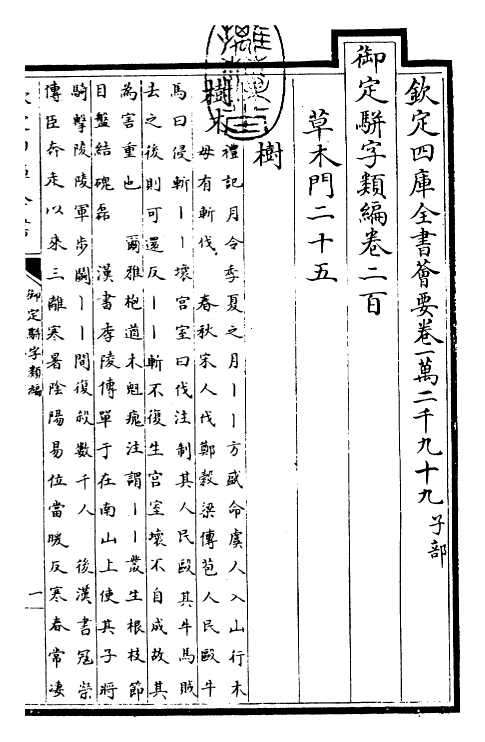 欽定四庫全書薈要卷一萬二千九十九子部
御定駢字類編卷二百
草木門二十五
樹
樹木
禮記月令季夏之月丨丨方盛命虞人入山行木
毋有斬伐 春秋宋人伐鄭穀梁傳苞人民毆牛
馬曰侵斬丨丨壞宮室曰伐注制其人民毆其牛馬賊
去之後則可還反丨丨斬不復生宮室壞不自成故其
為害重也 爾雅枹遒木魁瘣注謂丨丨叢生根枝節
目盤結磈磊 漢書李陵傳單于在南山上使其子將
騎擊陵陵軍步鬭丨丨間復殺數千人 後漢書冦榮
傳臣奔走以來三離寒暑陰陽易位當暖反寒春常凄
御定駢字類編
一